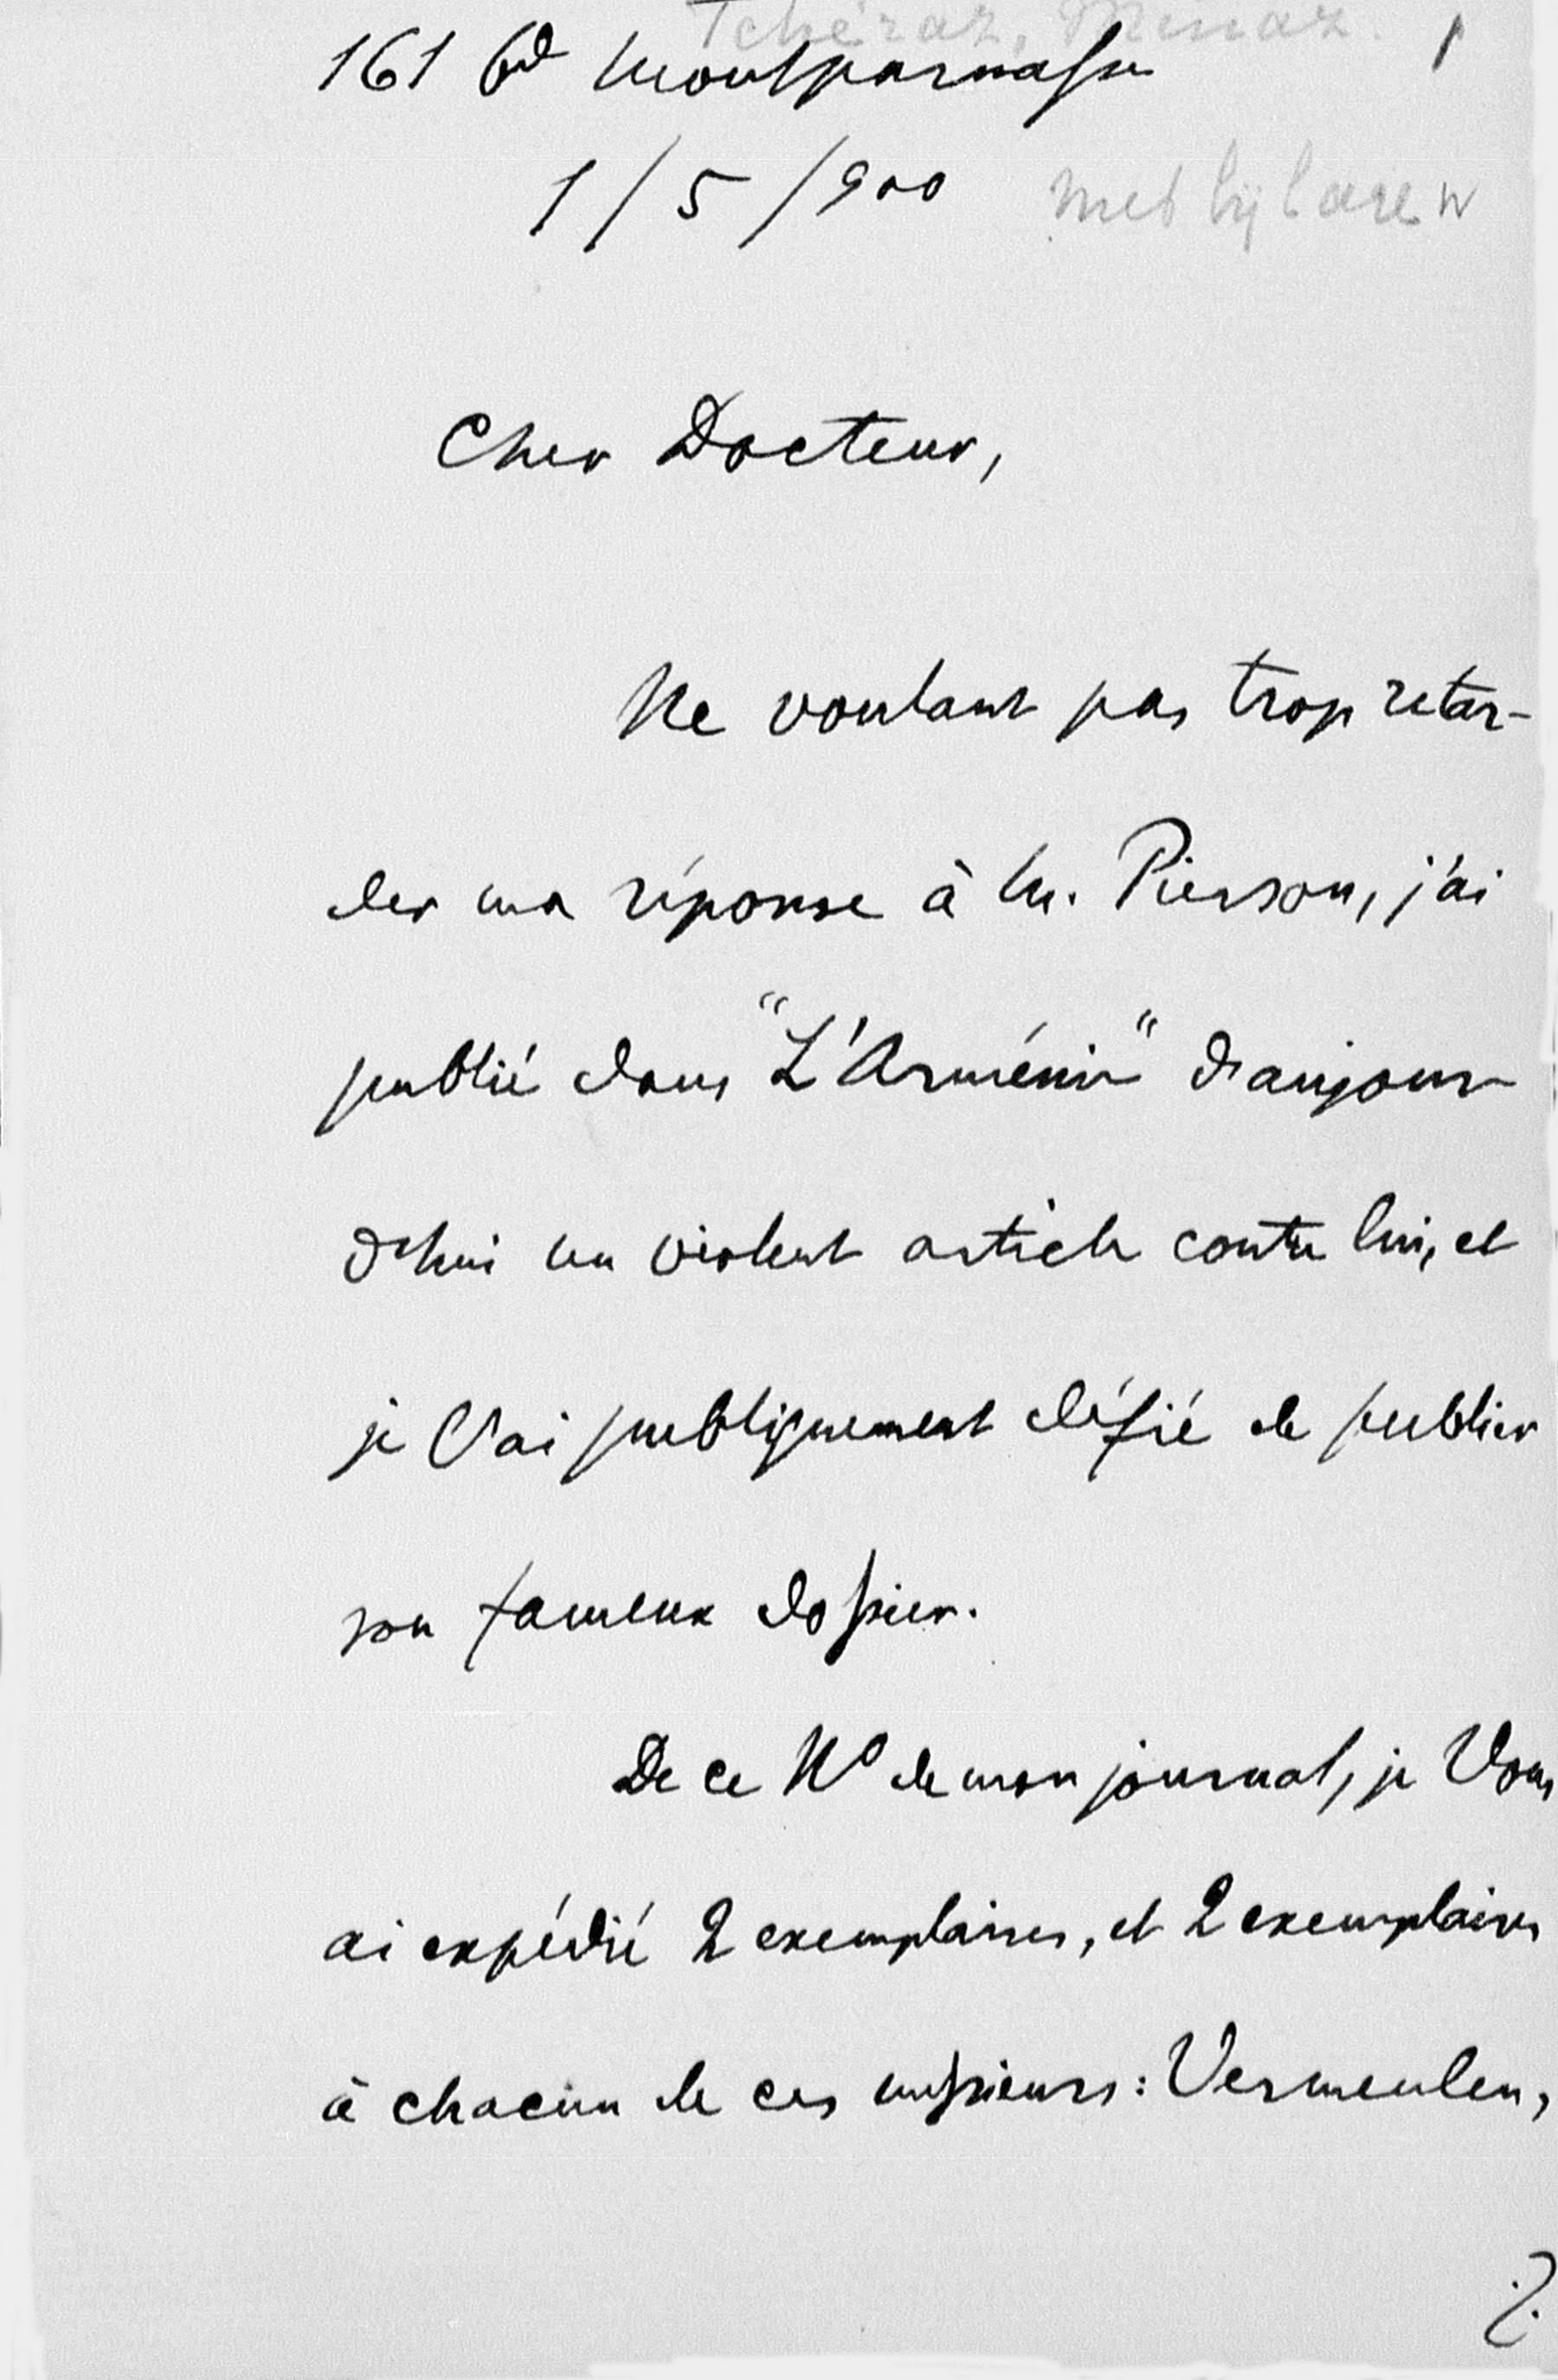 Tchéraz, Minaz. 1
161 Bd Montparnasse
1/5/900 met bijlagen
Cher Docteur,
Ne voulant pas trop retar-
der ma réponse à M. Pierson, j'ai
publié dans "L'Arménie" d'aujour-
d'hui un violent article contre lui, et
je l'ai publiquement défié de publier
son fameux dossier.
De ce No de mon journal, je Vous
ai expédié 2 exemplaires, et 2 exemplaires
à chacun de ces messieurs: Vermeulen,